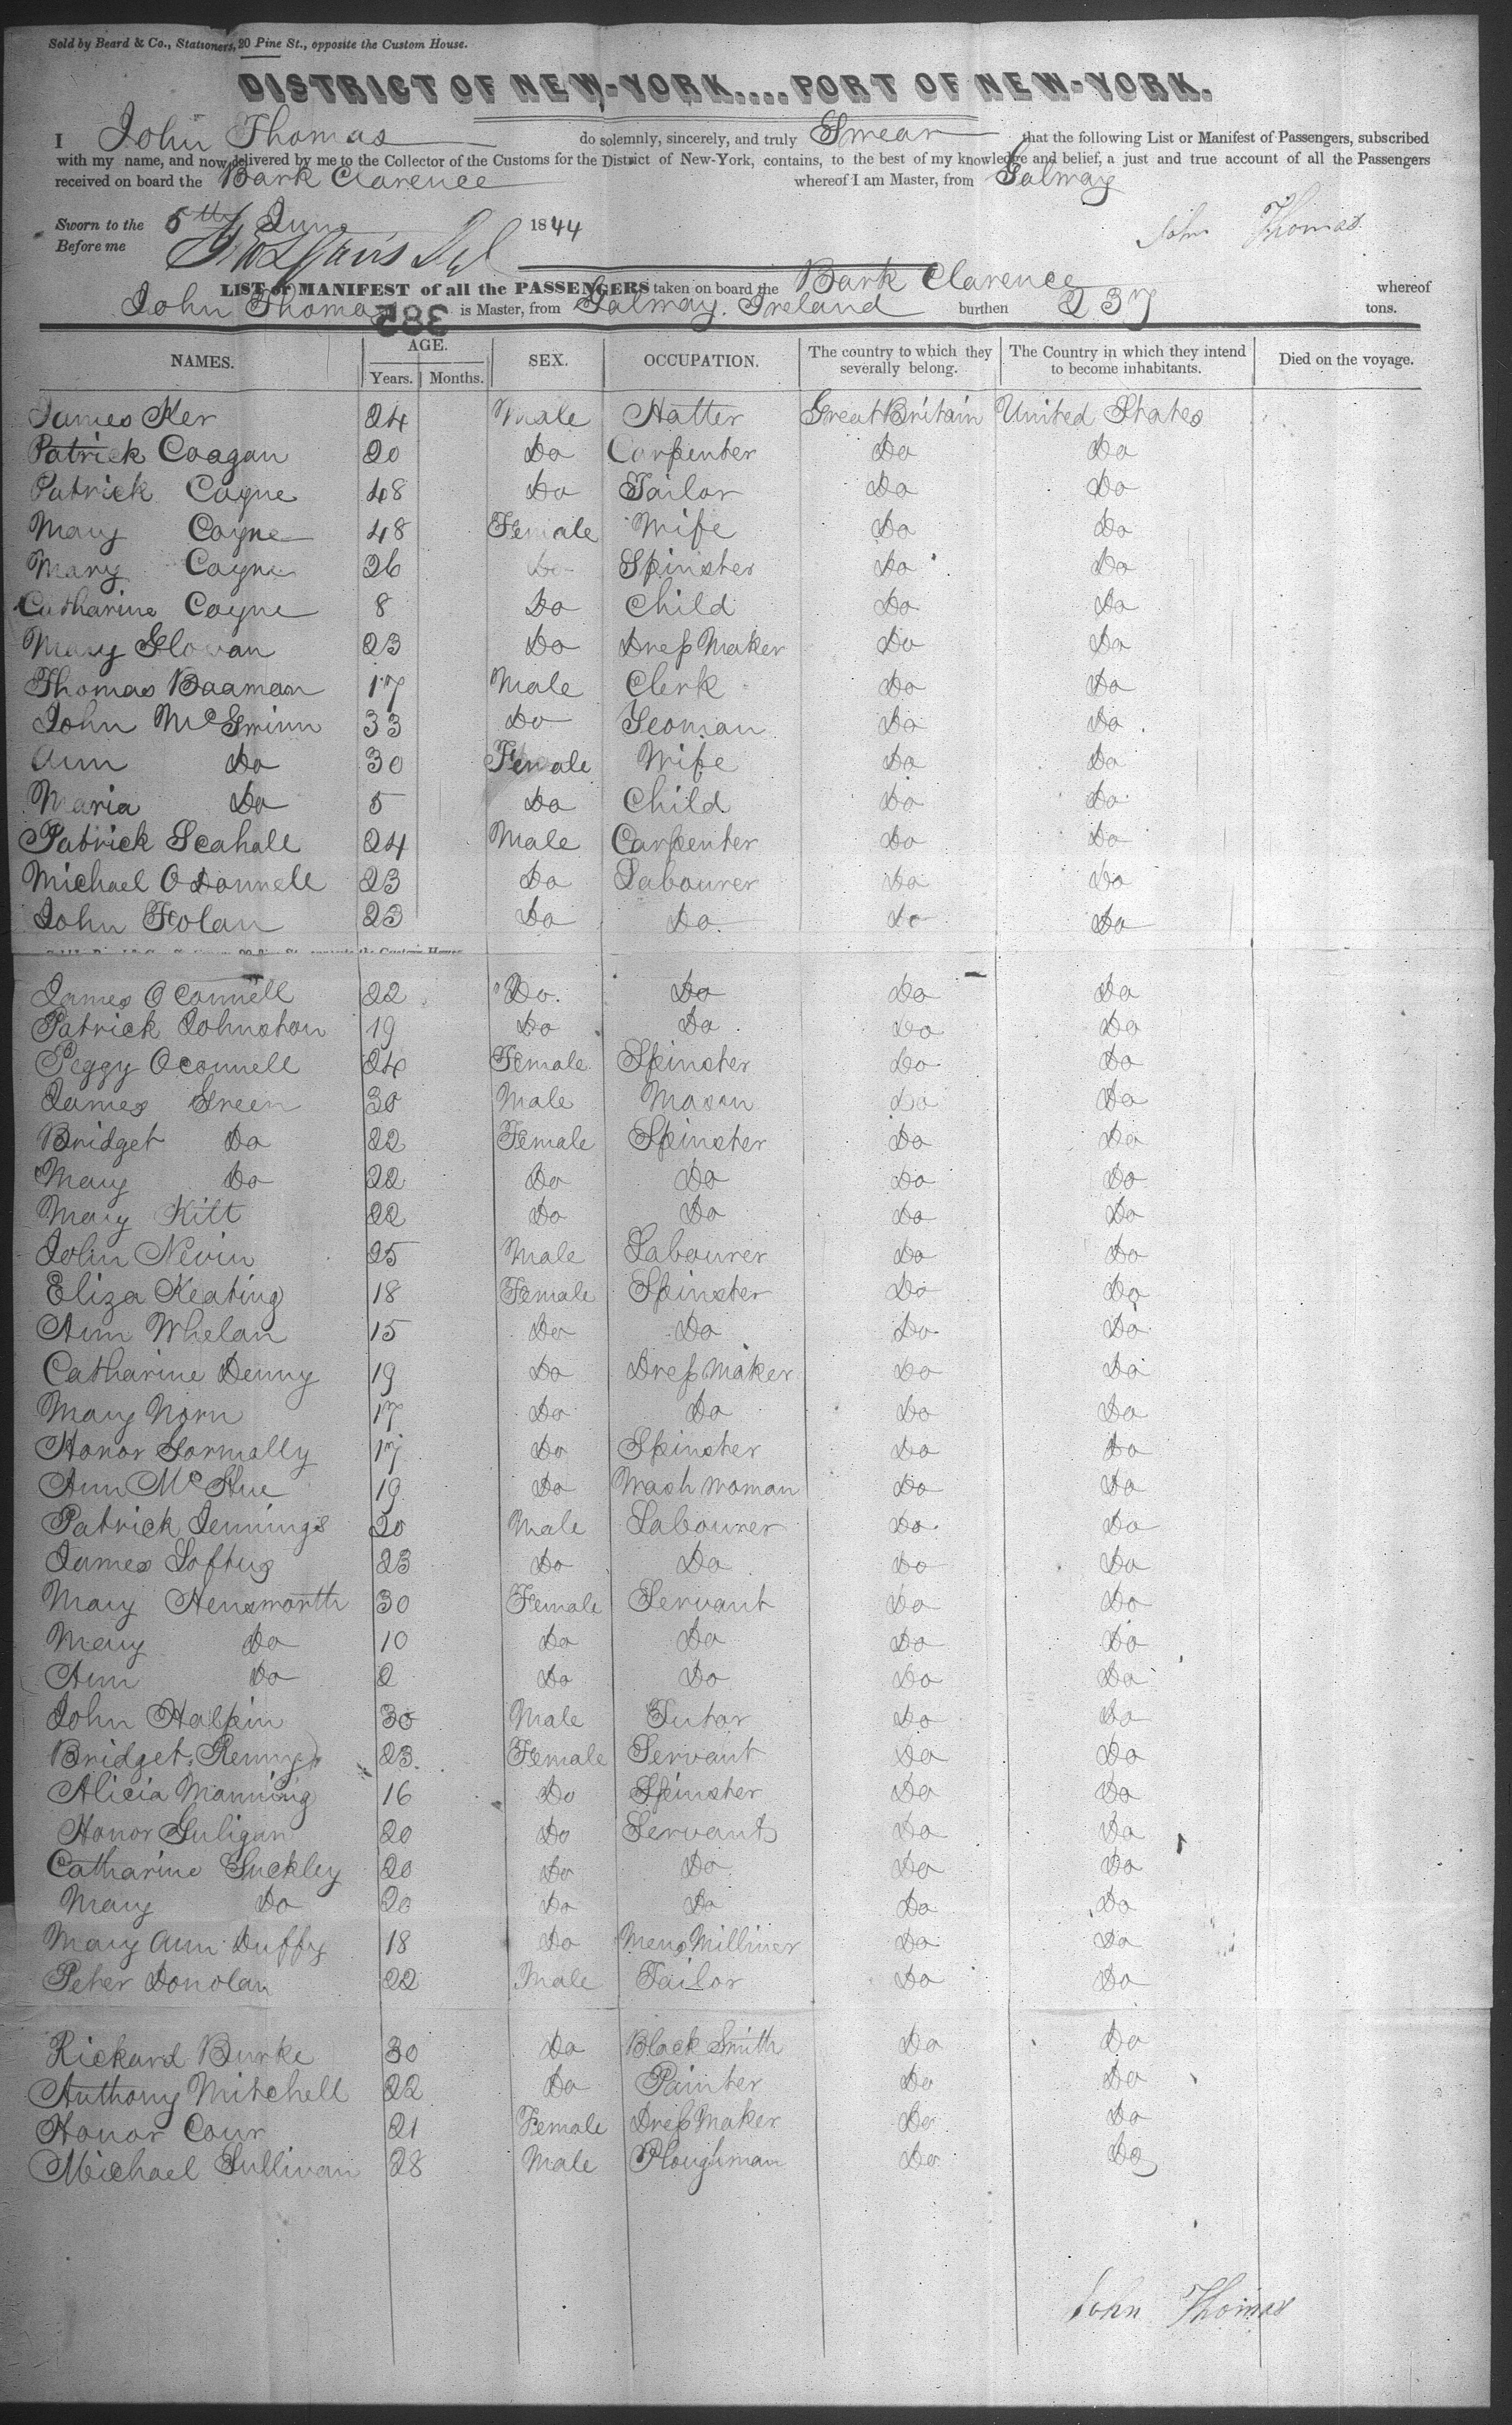 Sold by Beard & Co., Stationers, 20 Pine St., opposite the Custom House.
DISTRICT OF NEW-YORK....PORT OF NEW-YORK.
I John Thomas do solemnly, sincerely, and truly Swear that the following List or Manifest of Passengers, subscribed
with my name, and now delivered by me to the Collector of the Customs for the District of New-York, contains, to the best of my knowledge and belief, a just and true account of all the Passengers
received on board the Bark Clarence whereof I am Master, from Galway
Sworn to the 5th June 1844 John Thomas
Before me
LIST or MANIFEST of all the PASSENGERS taken on board the Bark Clarence whereof
John Thomas is Master, from Galway. Ireland burthen 237 tons.
385
NAMES. AGE. SEX. OCCUPATION. The country to which they severally belong. The Country in which they intend to become inhabitants. Died on the voyage.
Years. Months.
James Ker 24 Male Hatter Great Britain United States
Patrick Coagan 20 Do Carpenter Do Do
Patrick Coyne 48 Do Tailor Do Do
Mary Coyne 48 Female Wife Do Do
Mary Coyne 26 Do Spinster Do Do
Catharine Coyne 8 Do Child Do Do
Mary Glowan 23 Do Dress Maker Do Do
Thomas Baaman 17 Male Clerk Do Do
John McGwinn 33 Do Yeoman Do Do
Ann Do 30 Female Wife Do Do
Maria Do 5 Do Child Do Do
Patrick Scahall 24 Male Carpenter Do Do
Michael O Donnell 23 Do Labourer Do Do
John Folan 23 Do Do Do Do
James O Connell 22 Do. Do Do Do
Patrick Johnston 19 Do Do Do Do
Peggy Oconnell 24 Female Spinster Do Do
James Green 30 Male Mason Do Do
Bridget Do 22 Female Spinster Do Do
Mary Do 22 Do Do Do Do
Mary Kilt 22 Do Do Do Do
John Nevin 25 Male Labourer Do Do
Eliza Keating 18 Female Spinster Do Do
Ann Whelan 15 Do Do Do Do
Catharine Denny 19 Do Dress Maker Do Do
Mary Norn 17 Do Do Do Do
Honor Gormally 17 Do Spinster Do Do
Ann McHue 19 Do Wash woman Do Do
Patrick Jennings 20 Male Labourer Do Do
James Loftus 23 Do Do Do Do
Mary Hensworth 30 Female Servant Do Do
Mary Do 10 Do Do Do Do
Ann Do 2 Do Do Do Do
John Halpin 30 Male Tutor Do Do
Bridget Kenny 23 Female Servant Do Do
Alicia Manning 16 Do Spinster Do Do
Honor Guligan 20 Do Servant Do Do
Catharine Suckley 20 Do Do Do Do
Mary Do 20 Do Do Do Do
Mary Ann Duffy 18 Do Mens Milliner Do Do
Peter Donolan 22 Male Tailor Do Do
Rickard Burke 30 Do Black Smith Do Do
Anthony Mitchell 22 Do Painter Do Do
Honor Cour 21 Female Dress Maker Do Do
Michael Sullivan 28 Male Ploughman Do Do
John Thomas